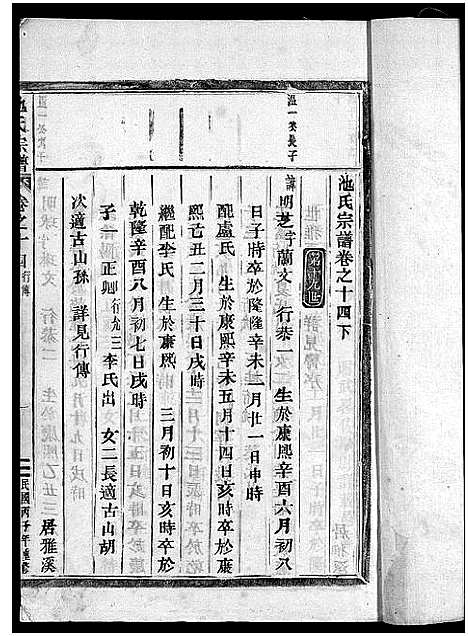 池氏宗譜卷之十四下
第十九世
温一公長子
諱明芝字蘭文行恭一 生於康熙辛酉六月初八
日子時卒於隆隆辛未二月廿一日申時
配盧氏 生於康熙辛未五月十四日亥時卒於康
熙己丑二月三十日戌時
繼配李氏 生於康熙 三月初十日亥時卒於
乾隆辛酉八月初七日戌時
子一 正卿行九三李氏出 女二長適古山胡
次適古山孫 詳見行傳
池氏宗譜 卷之十四 行傳
民國丙子年重修
居雅溪